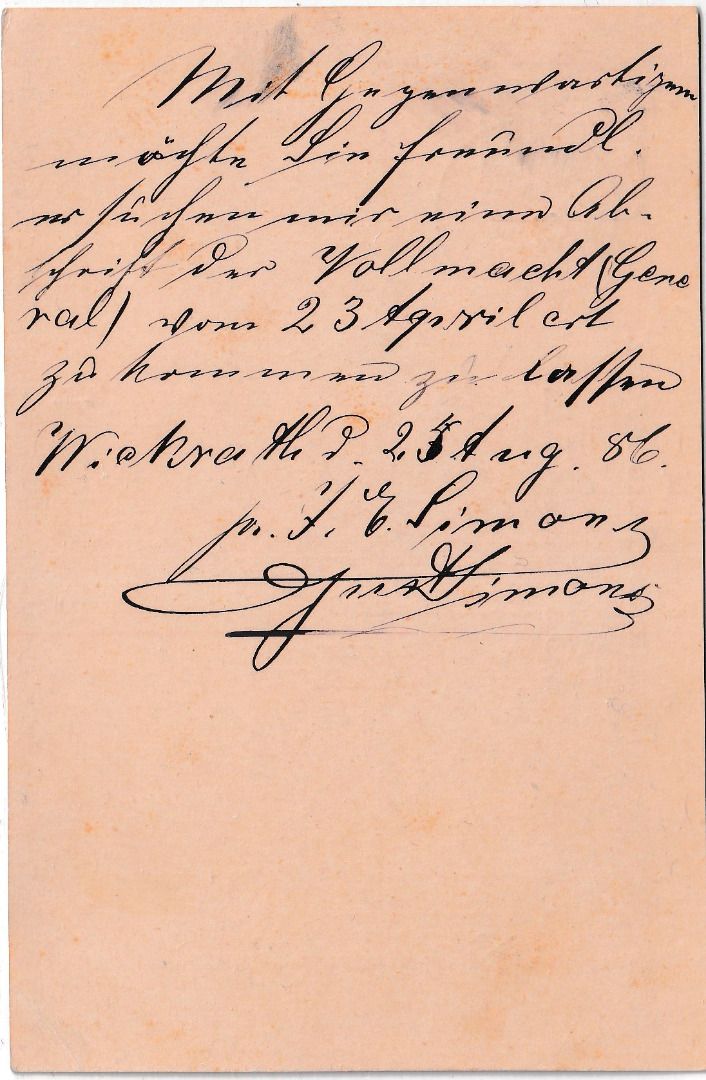 Mit Gegenwärtigem
möchte Sie freundl.
ersuchen mir eine Ab-
schrift der Vollmacht (Gene
ral) vom 23 April crt
zu kommen zu lassen
Wickrath d. 25 Aug. 86.
pr. J. E. Simons
Gust Simons